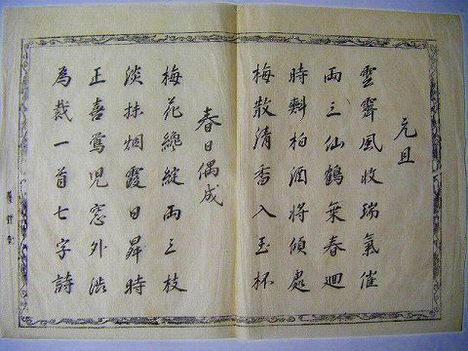 元旦
雲霽風收瑞氣催
兩三仙鶴乗春廻
時斟柏酒將傾處
梅散清香入玉杯
春日偶成
梅花纔綻兩三枝
淡抹烟霞日昇時
正喜鶯兒窓外渋
為裁一首七字詩